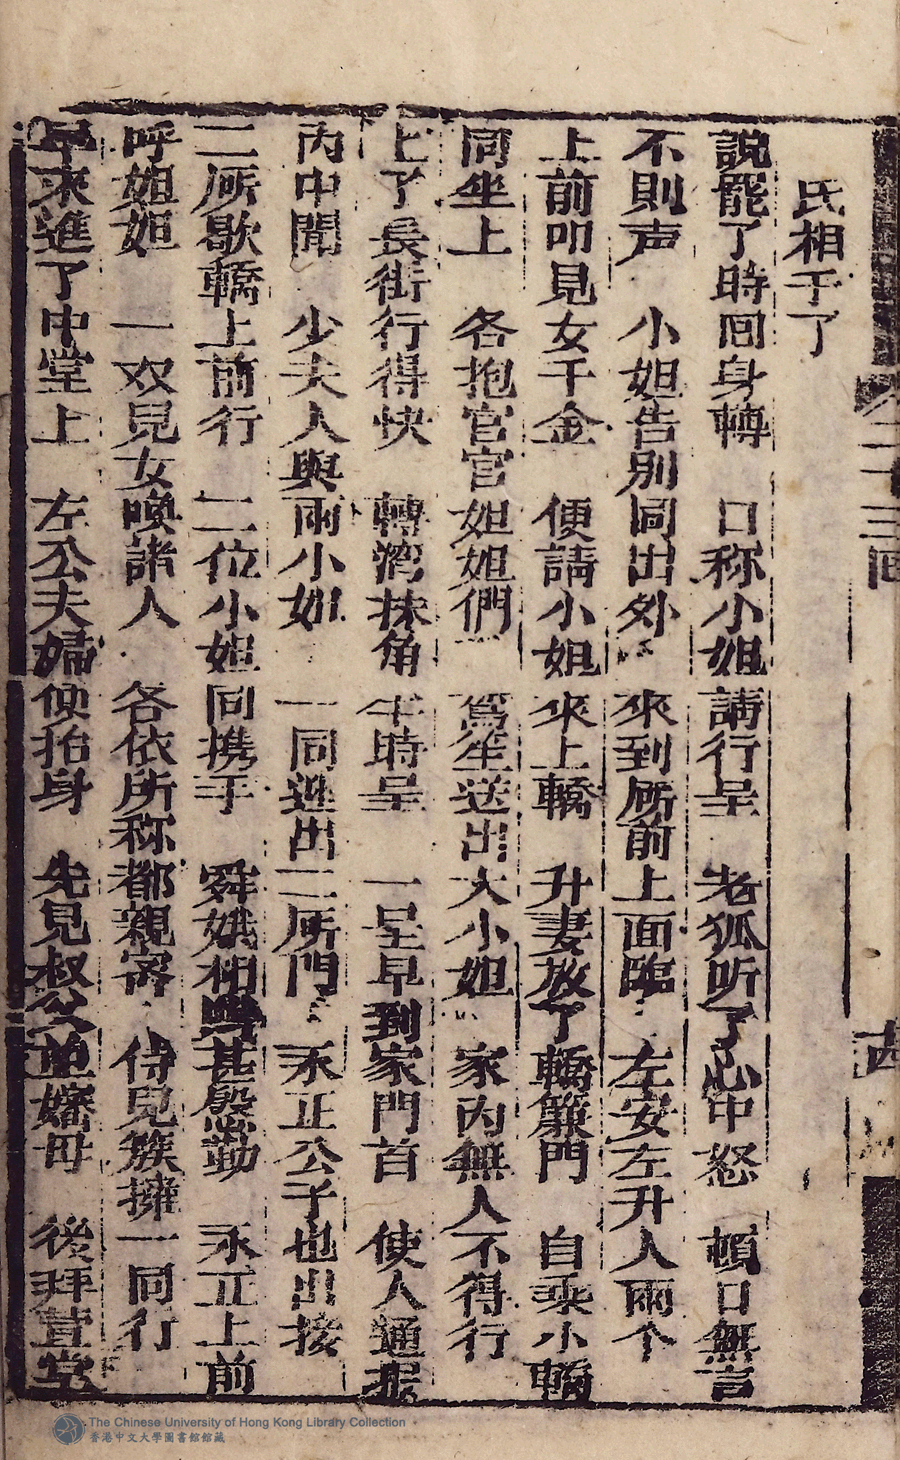 二十三回
氏相于了
說罷了時回身轉　口称小姐請行呈　老狐听了心中怒　頓口無言
不則声　小姐告別同出外　來到𠩄前上面臨　左安左升人兩个
上前叩見女千金　便請小姐來上轎　升妻放了轎簾門　自乘小轎
同坐上　各抱官官姐姐們　送出大小姐　家內無人不得行
上了長街行得快　轉湾抹角半時呈　一呈早到家門首　使人通报
丙中聞　少夫人與兩小姐　一同迎出二𠩄門　永正公子也出接
二𠩄歇轎上前行　二位小姐同携手　舜娥相甚慇勤　永正上前
呼姐姐　一双兒女喚諸人　各依所称都親密　侍兒簇擁一同行
早來進了中堂上　左公夫婦便抬身　先見叔公並嬸母　後拜萱堂
The Chinese University of Hong Kong Library Collection
香港中文大學圖書館館藏